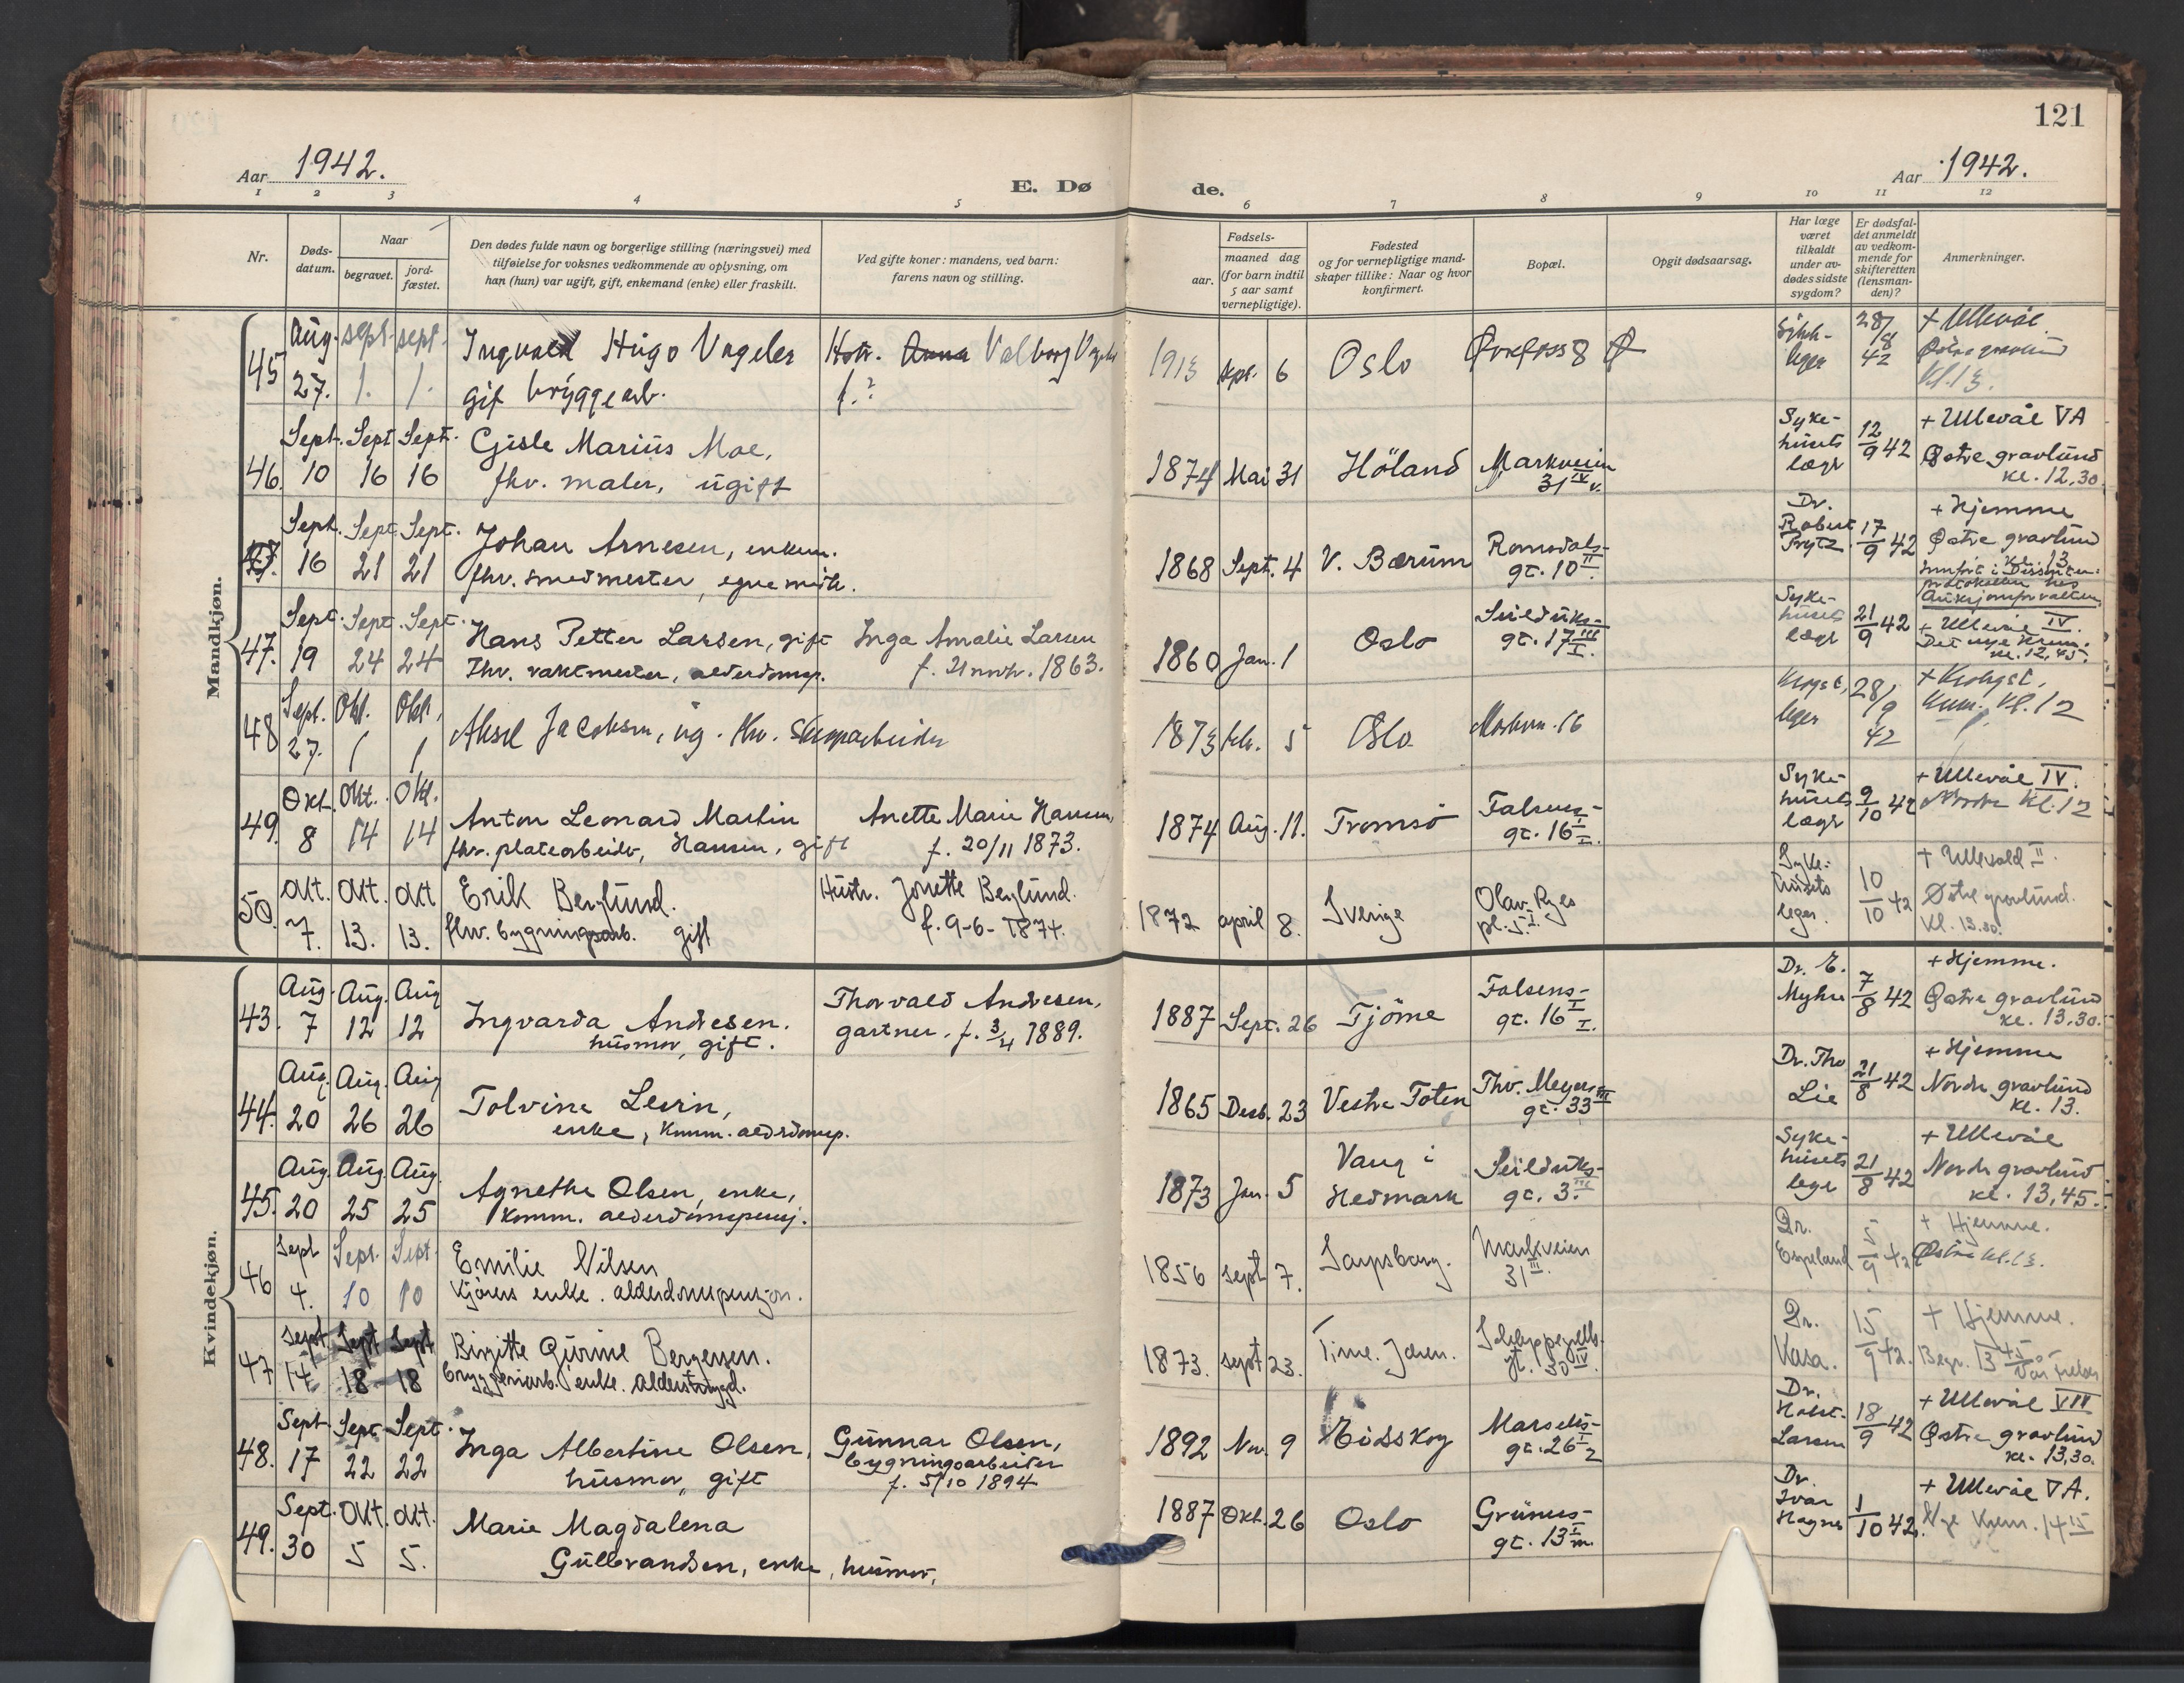 121
Aar 1942.
E. Døde.
Aar 1942.
1 2 3 4 5 6 7 8 9 10 11 12
Nr.
Døds-
datum.
Naar
begravet.
jord-
fæstet.
Den dødes fulde navn og borgerlige stilling (næringsvei) med
tilføielse for voksnes vedkommende av oplysning, om
han (hun) var ugift, gift, enkemand (enke) eller fraskilt.
Ved gifte koner: mandens, ved barn:
farens navn og stilling.
Fødsels-
aar.
maaned dag
(for barn indtil
5 aar samt
vernepligtige).
Fødested
og for vernepligtige mand-
skaper tillike: Naar og hvor
konfirmert.
Bopæl.
Opgit dødsaarsag.
Har læge
været
tilkaldt
under av-
dødes sidste
sygdom?
Er dødsfal-
det anmeldt
av vedkom-
mende for
skifteretten
(lensman-
den)?
Anmerkninger.
Mandkjøn.
45 Aug. 27. sept. 1. sept. 1.
Ingvald Hugo Vogeler
gif bryggearb.
Hstr. Valborg
f. ?
1913 sept. 6 Oslo
28/8 42
+ Ullevål
Østre gravlund
Kl. 13.
46. Sept. 10 Sept 16 Sept. 16
Gisle Marius Moe,
fhv. maler, ugift
1874 Mai 31 Höland Markveien
31 IV v.
Syke-
husets
læge
12/9 42
+ Ullevål VA
Østre gravlund
kl. 12,30.
Sept. 16 Sept. 21 Sept. 21
Johan Arnesen, enkem.
fhv. smedmester, egne midl.
1868 Sept. 4 V. Bærum Romsdals-
gt. 10 II.
Dr.
Robert
Prytz.
17/9 42
+ Hjemme
Østre gravlund
kl. 13
Innført i Dissenter-
protokollen hos
47. Sept. 19 Sept. 24 Sept. 24
Hans Petter Larsen, gift
Fhv. vaktmester, alderdomsp.
Inga Amalie Larsen
f. 21 novbr. 1863.
1860 Jan. 1 Oslo Seilduks-
gt. 17 III I.
Syke-
husets
læge
21/9 42
+ Ullevål IV.
Det nye Krem.
kl. 12,45.
48 Sept. 27. Okt. 1 Okt. 1
Aksel Jacobsen, ug. fhv.
1873 febr. 5 Oslo Markvn. 16
leger
28/9 42
Krem. Kl. 12
49. Okt. 8 Okt. 14 Okt. 14
Anton Leonard Martin
fhv. platearbeider, Hansen, gift
Anette Marie Hansen,
f. 20/11 1873.
1874 Aug. 11. Tromsö Falsens-
gt. 16 I I.
Syke-
husets
læge
9/10 42
+ Ullevål IV.
Nordre Kl. 12
50. Okt. 7. Okt. 13. Okt 13.
Erik Berglund.
fhv. bygningsarb. gift
Hustr. Jonette Berglund.
f. 9-6-1874.
1872 april 8. Sverige Olav Ryes
pl. 5 I.
Syke-
husets
leger.
10/10 42
+ Ullevold II.
Østre gravlund.
Kl. 13.30.
Kvindekjøn.
43. Aug. 7 Aug. 12 Aug 12
Ingvarda Andresen.
husmor, gift.
Thorvald Andresen,
gartner. f. 3/4 1889.
1887 Sept. 26 Tjöme Falsens-
gt. 16 I I.
Dr. E.
Myhre
7/8 42
+ Hjemme.
Østre gravlund
kl. 13,30.
44. Aug. 20 Aug. 26 Aug 26
Tolvine Levin,
enke, komm. alderdomsp.
1865 Desb. 23 Vestre Toten Thv. Meyers
gt. 33 III
Dr. Tho
Lie
21/8 42
+ Hjemme
Nordre gravlund
kl. 13.
45. Aug. 20 Aug. 25 Aug. 25
Agnethe Olsen, enke,
komm. alderdomspensj.
1873 Jan. 5 Vang i
Hedmark
Seilduks-
gt. 3. III
Syke-
husets
lege
21/8 42
+ Ullevål
Nordre gravlund
kl. 13,45.
46 Sept 4. Sept. 10 Sept. 10
Emilie Nilsen
Kjørers enke. alderdomspensjon.
1856 sept 7. Sarpsborg. Markveien
31 III.
Dr.
Espeland
5/9 42
+ Hjemme.
Østre kl. 13.
47 Sept 14 Sept 18 Sept 18
Birgitte Gurine Bergersen.
bryggeriarb. enke. alderstrygd.
1873. sept 23. Time. Jæren. Schleppegrells
gt. 30 IV.
Dr.
Kasa.
15/9 42.
+ Hjemme.
48. Sept. 17 Sept. 22 Sept. 22
Inga Albertine Olsen,
husmor, gift
Gunnar Olsen,
bygningsarbeider
f. 5/10 1894
1892 Nov. 9 Eidskog Marselis-
gt. 26 I 2
Dr.
Holst-
Larsen
18/9 42
+ Ullevål VII
Østre gravlund
kl. 13,30.
49. Sept. 30 Okt. 5 Okt. 5.
Marie Magdalena
Gulbrandsen, enke, husmor,
1887 Okt. 26 Oslo Grüners-
gt. 13 I m.
Dr.
Ivar
Hagnes
1/10 42.
+ Ullevål VA.
Nye Krem. 14 15